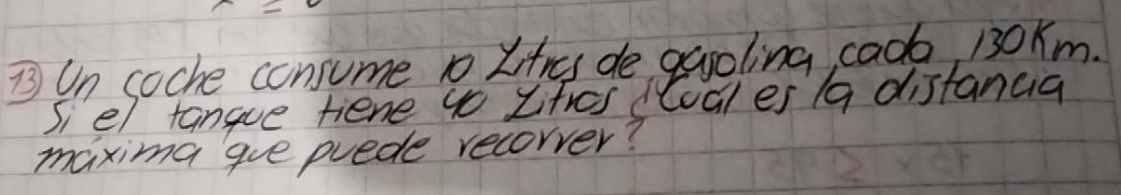 13) Un coche consume 10 Litros de gasolina cada 130Km.
Si el tanque tiene 40 Litros ¿Cuál es la distancia
máxima que puede recorrer?